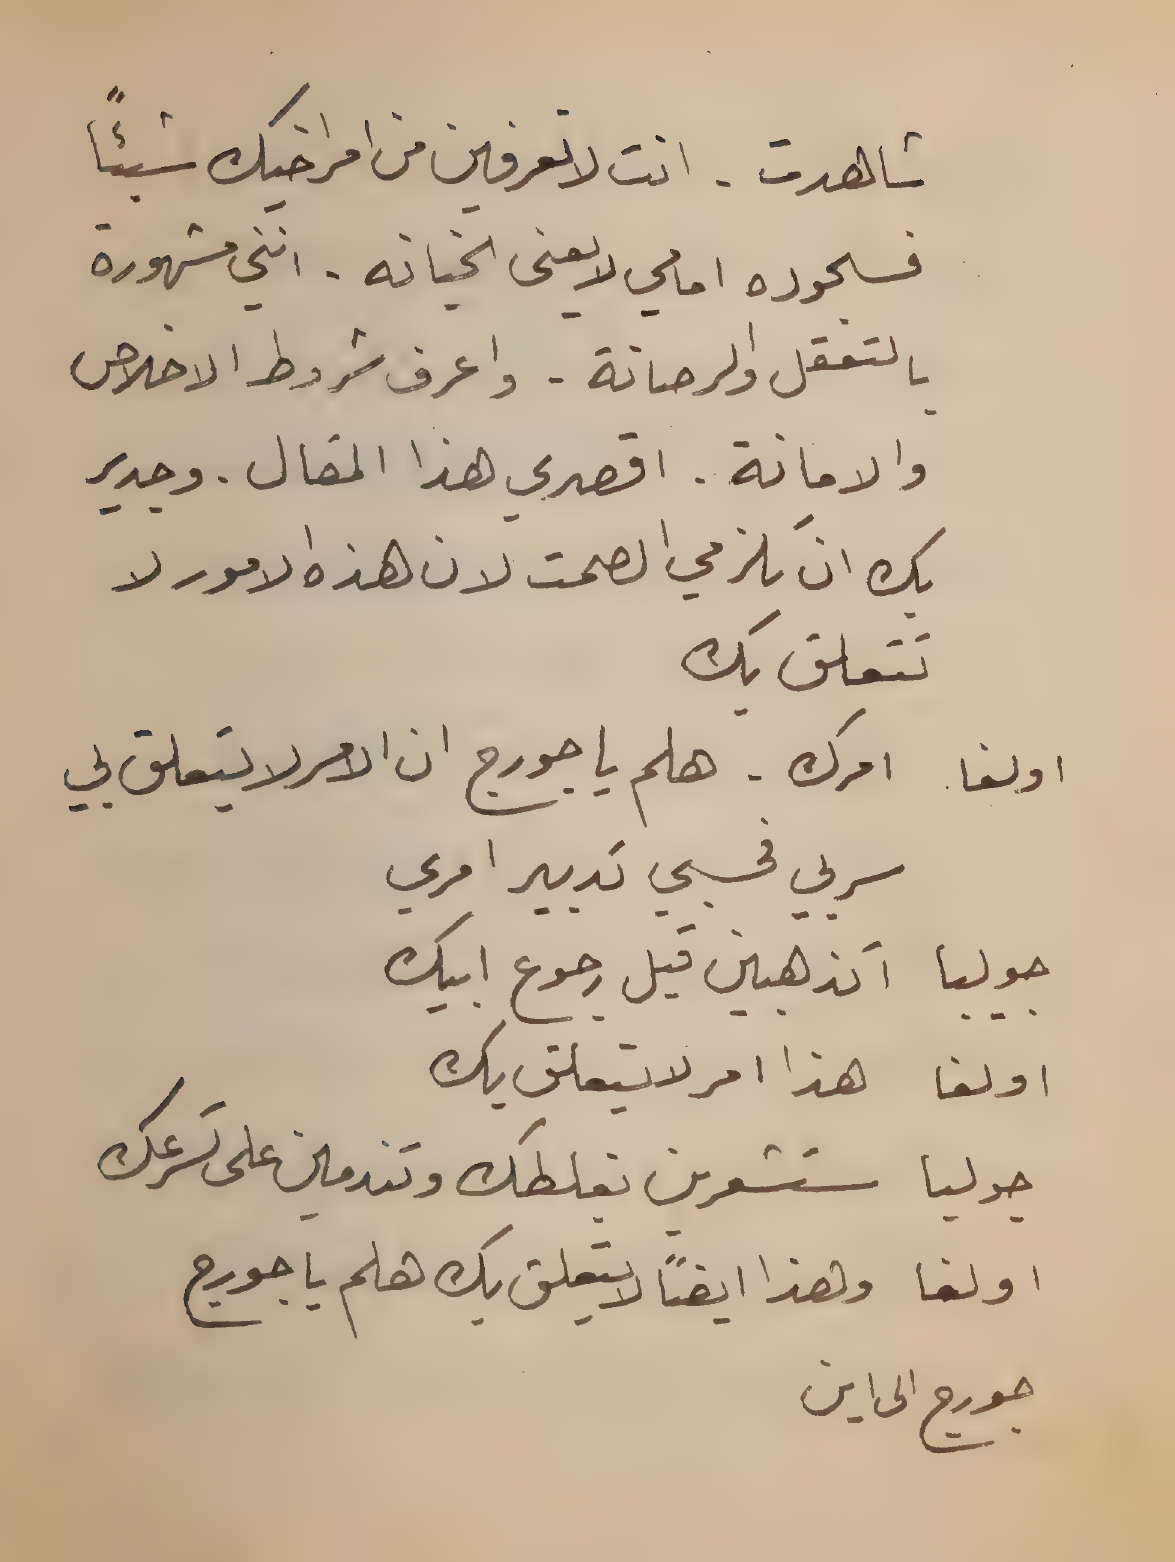 شاهدت . انت لا تعرفين من امر اخيك شيئًا
فسجوده امامي لا يعني الخيانه . انني مشهورة
بالتعقل والرصانة . واعرف شروط الاخلاص
والامانة . اقصري هذا المقال . وجدير
بك ان تلزمي الصمت لان هذه الامور لا
تتعلق بك
اولغا امرك . هلم يا جورج ان الامر لا يتعلق بي
سر بي فحسبي تدبير امري
جوليا أتذهبين قبل رجوع ابيك
اولغا هذا امر لا يتعلق بك
جوليا ستشعرين بغلطك وتندمين على تسرعك
اولغا وهذا ايضًا لا يتعلق بك هلم يا جورج
جورج الى اين